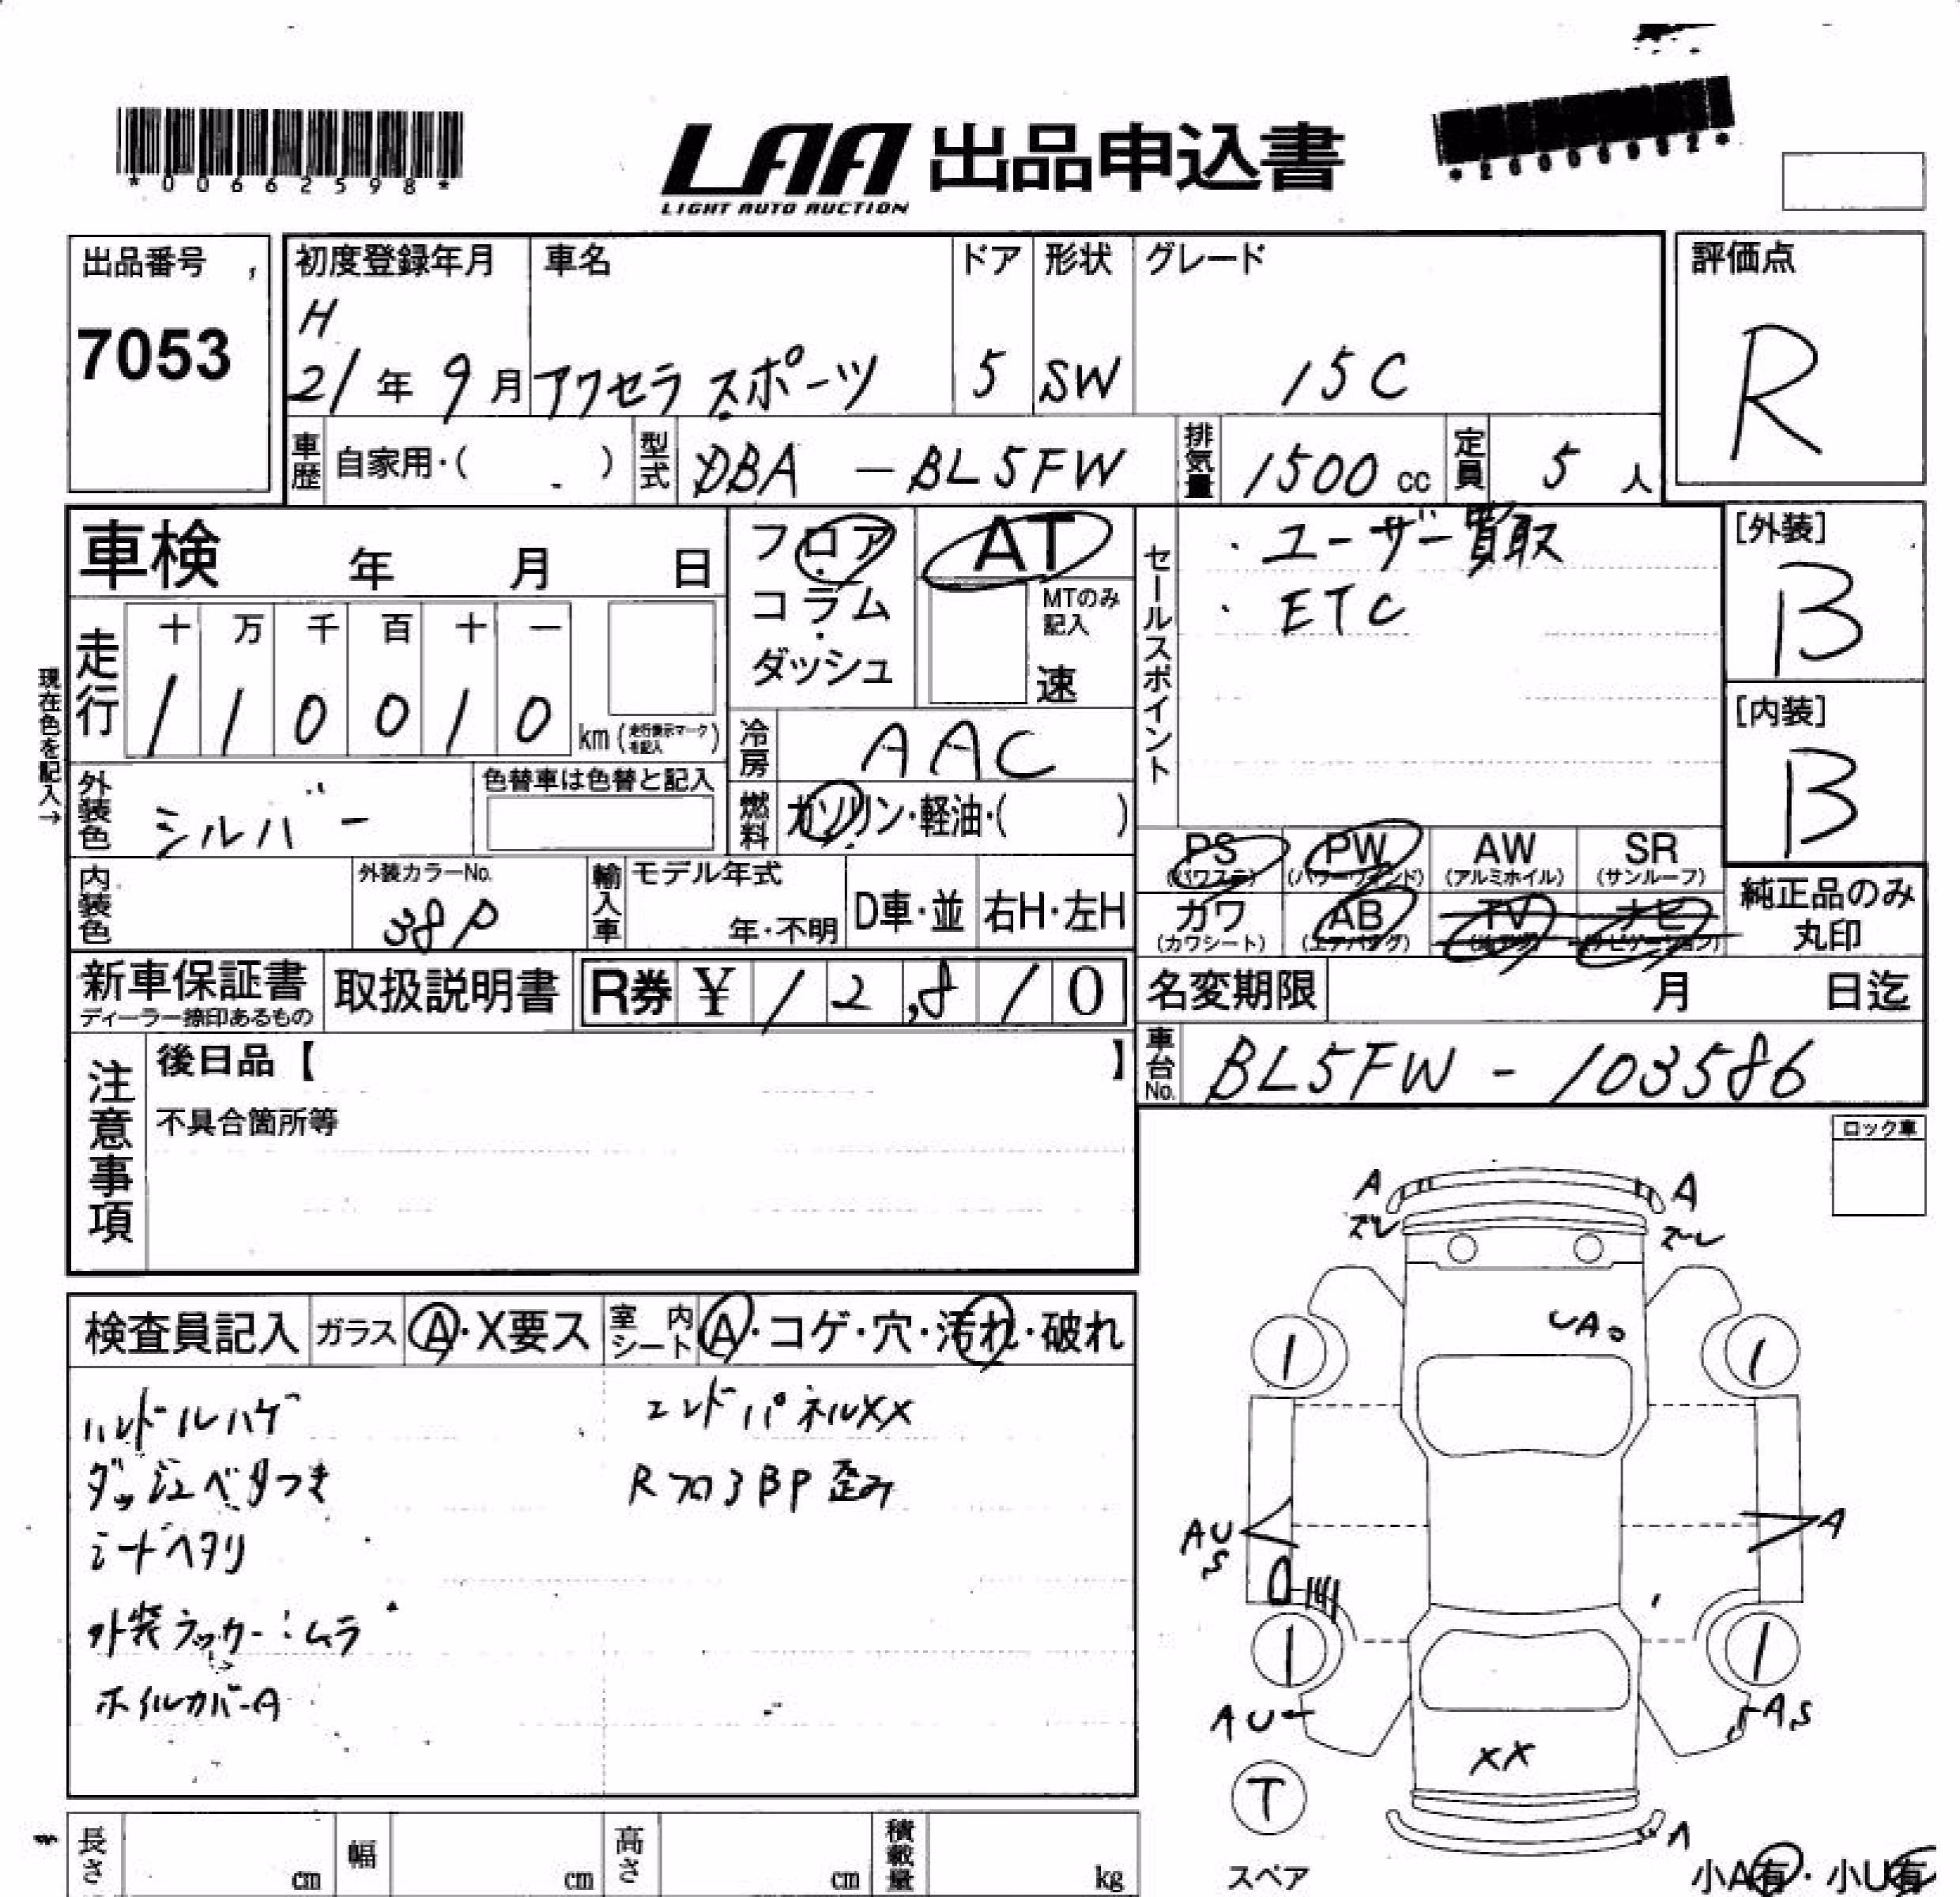 *00662598*
LAA 出品申込書
LIGHT AUTO AUCTION
出品番号
7053
初度登録年月
H
21年 9月
車名
アクセラ スポーツ
ドア
5
形状
SW
グレード
15C
評価点
R
車歴 自家用・( )
型式 DBA - BL5FW
排気量 1500 cc
定員 5 人
車検 年 月 日
フロア・コラム・ダッシュ
AT
MTのみ記入
速
セールスポイント
・ユーザー買取
・ETC
[外装]
B
[内装]
B
現在色を記入→
走行
十 万 千 百 十 一
1 1 0 0 1 0 km (走行表示マークを記入)
冷房 AAC
外装色 シルバー
色替車は色替と記入
燃料 ガソリン・軽油・( )
PS (パワステ)
PW (パワーウインド)
AW (アルミホイル)
SR (サンルーフ)
内装色
外装カラーNo.
38P
輸入車
モデル年式
年・不明
D車・並
右H・左H
カワ (カワシート)
AB (エアバッグ)
TV
ナビ (ナビゲーション)
純正品のみ丸印
新車保証書
ディーラー捺印あるもの
取扱説明書
R券 ¥ 12,810
名変期限 月 日迄
注意事項
後日品【 】
車台No. BL5FW - 103586
不具合箇所等
ロック車
A A
ズレ ズレ
UA。
検査員記入 ガラス A・X要ス 室内シート A・コゲ・穴・汚れ・破れ
ハンドルハゲ
ダッシュベタつき
シートヘタリ
外装ラッカー:ムラ
ホイルカバーA
エンドパネルXX
RフロアBP歪み
1 1
AU
S
A
1 1
AU
AS
XX
T
スペア
A
小A有・小U有
長さ cm 幅 cm 高さ cm 積載量 kg